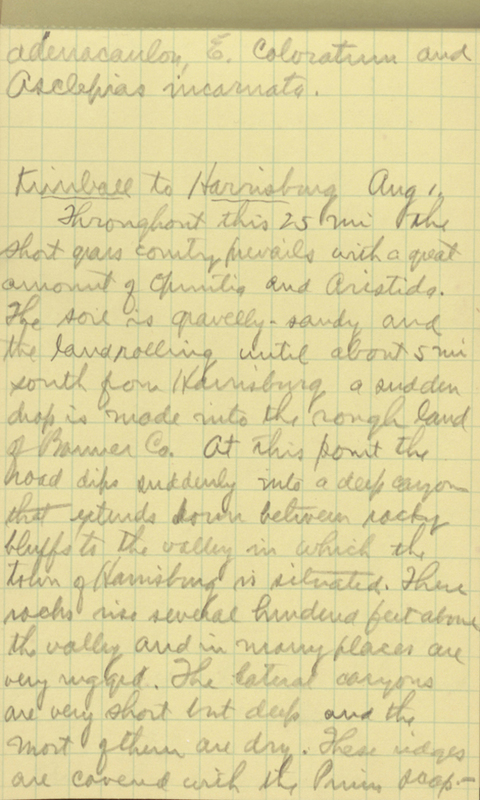 adenocaulon, E. Coloratum and
Asclepias incarnata.
Kimball to Harrisburg Aug 1.
Throughout this 25 mi the
short grass country prevails with a great
amount of Opuntia and Aristida.
The soil is gravelly-sandy and
the land rolling until about 5 mi
south from Harrisburg a sudden
drop is made into the rough land
of Banner Co. At this point the
road dips suddenly into a deep canyon
that extends down between rocky
bluffs to the valley in which the
town of Harrisburg is situated. These
rocks rise several hundred feet above
the valley and in many places are
very rugged. The lateral canyons
are very short but deep and the
most of them are dry. These ridges
are covered with the Pinus scop-